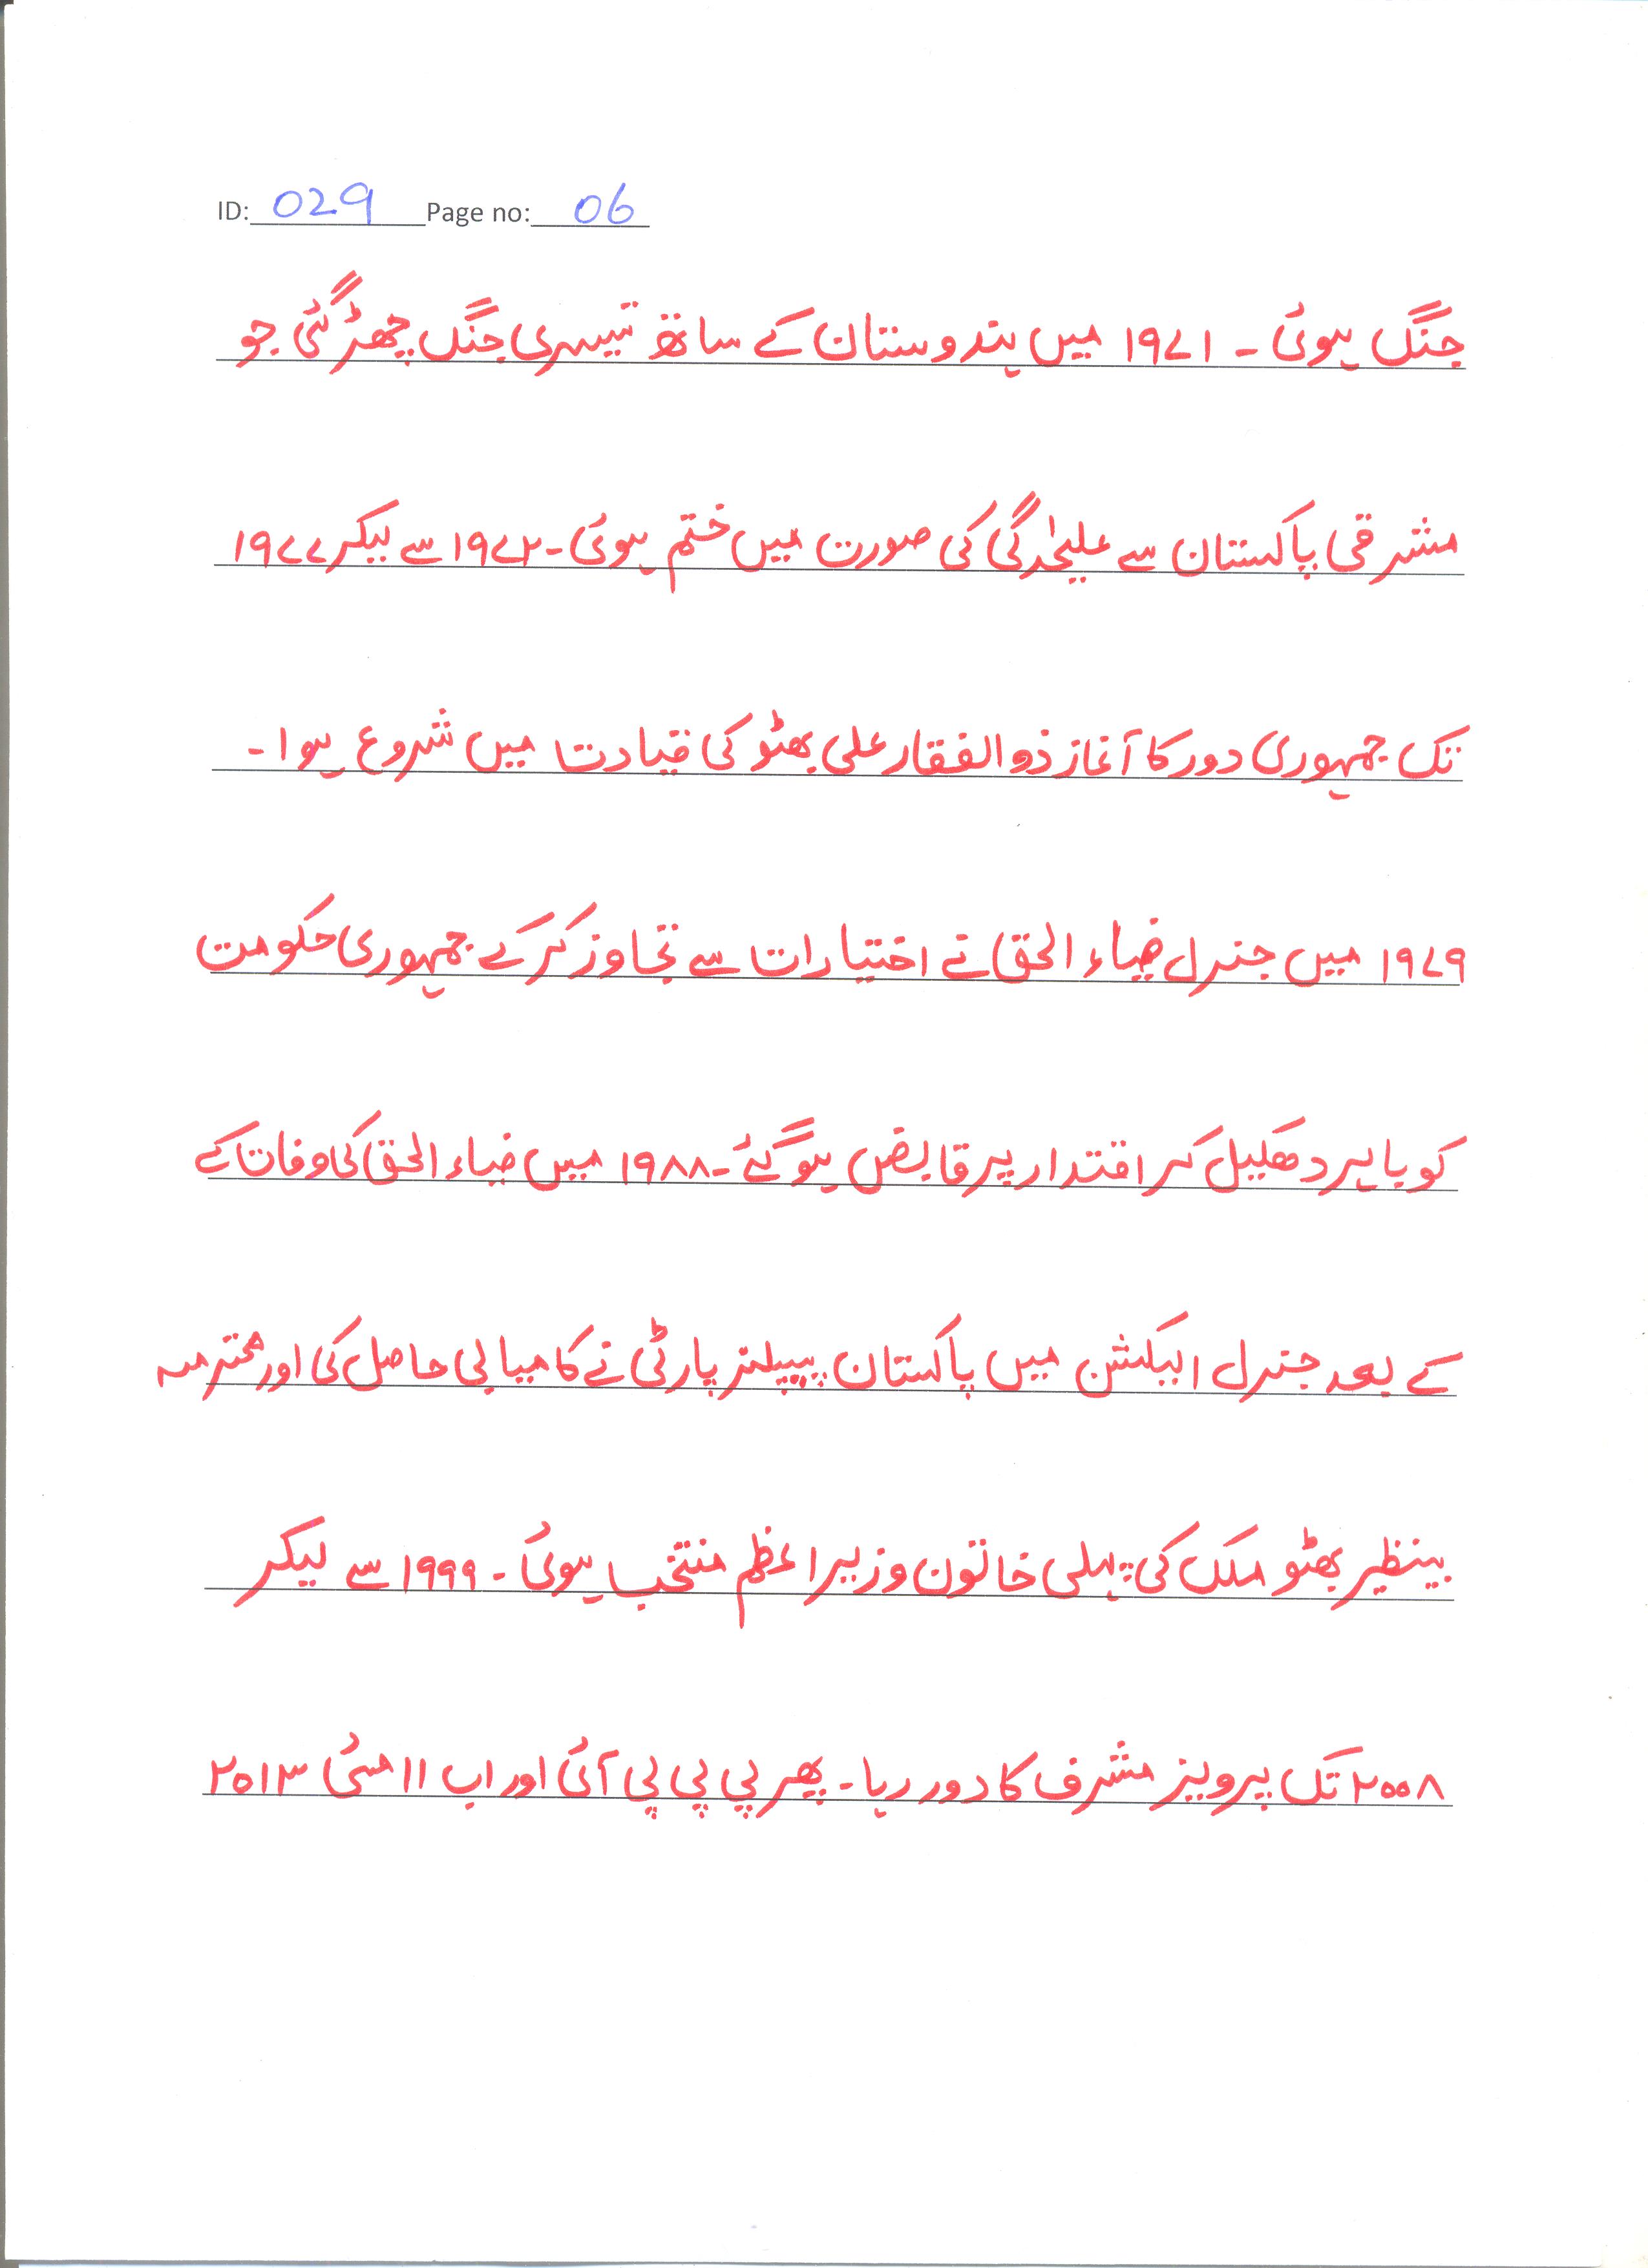 ID: 029 Page no: 06
جنگ ہوئی ۔ ۱۹۷۱ میں ہندوستان کے ساتھ تیسری جنگ چھڑ گئی جو
مشرقی پاکستان سے علیحٰدگی کی صورت میں ختم ہوئی ۔ ۱۹۷۲ سے لیکر ۱۹۷۷
تک جمہوری دور کا آغاز ذوالفقار علی بھٹو کی قیادت میں شروع ہوا ۔
۱۹۷۹ میں جنرل ضیاء الحق نے اختیارات سے تجاوز کر کے جمہوری حکومت
کو باہر دھکیل کر اقتدار پر قابض ہو گئے ۔ ۱۹۸۸ میں ضیاء الحق کی وفات کے
کے بعد جنرل الیکشن میں پاکستان پیپلز پارٹی نے کامیابی حاصل کی اور محترمہ
بینظیر بھٹو ملک کی پہلی خاتون وزیراعظم منتخب ہوئی ۔ ۱۹۹۹ سے لیکر
۲۰۰۸ تک پرویز مشرف کا دور رہا ۔ پھر پی پی پی آئی اور اب ۱۱ مئی ۲۰۱۳